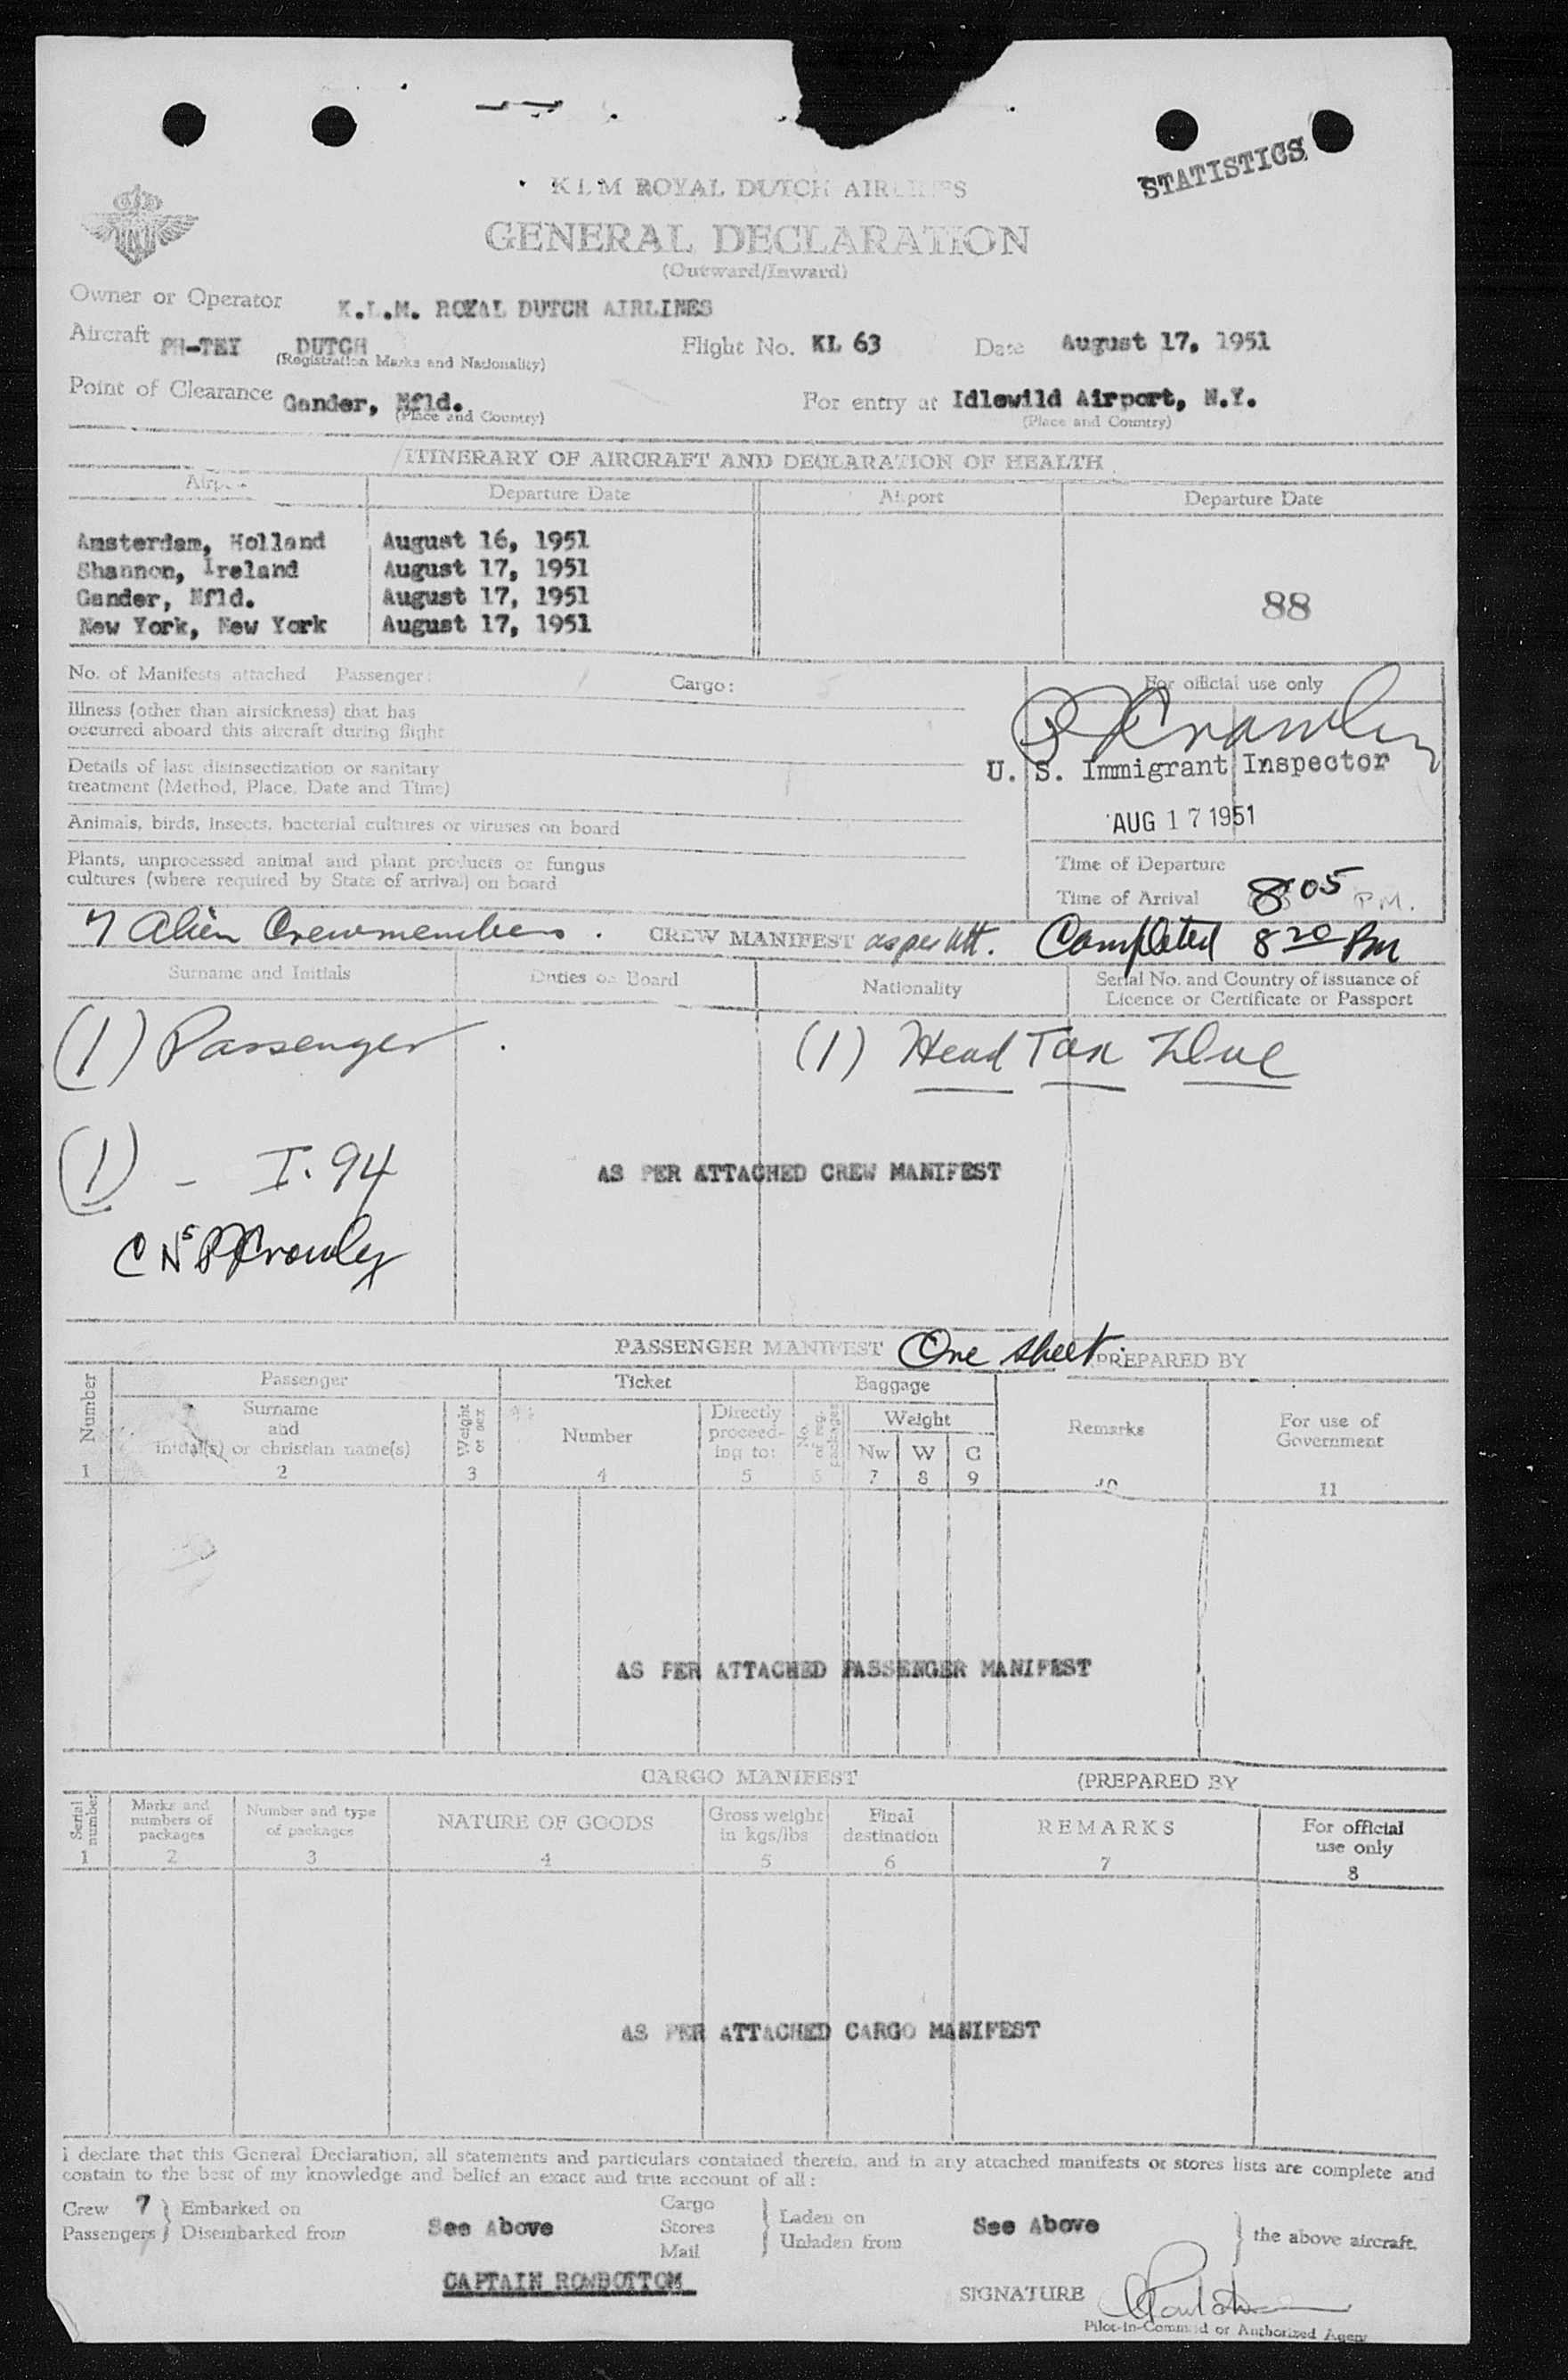 STATISTICS
KLM ROYAL DUTCH AIRLINES
GENERAL DECLARATION
(Outward/Inward)
Owner or Operator K.L.M. ROYAL DUTCH AIRLINES
Aircraft PH-TEY DUTCH Flight No. KL 63 Date August 17, 1951
(Registration Marks and Nationality)
Point of Clearance Gander, Nfld. For entry at Idlewild Airport, N.Y.
(Place and Country) (Place and Country)
ITINERARY OF AIRCRAFT AND DECLARATION OF HEALTH
Airport Departure Date Airport Departure Date
Amsterdam, Holland August 16, 1951
Shannon, Ireland August 17, 1951
Gander, Nfld. August 17, 1951 88
New York, New York August 17, 1951
No. of Manifests attached Passenger: Cargo: For official use only
Illness (other than airsickness) that has
occurred aboard this aircraft during flight
U. S. Immigrant Inspector
Details of last disinsectization or sanitary
treatment (Method, Place, Date and Time)
AUG 17 1951
Animals, birds, insects, bacterial cultures or viruses on board
Plants, unprocessed animal and plant products or fungus
cultures (where required by State of arrival) on board
Time of Departure
Time of Arrival 8 05 P.M.
7 Alien Crewmembers. CREW MANIFEST as per att. Completed 8 20 PM
Surname and Initials Duties on Board Nationality Serial No. and Country of issuance of
Licence or Certificate or Passport
(1) Passenger. (1) Head Tax Due
(1) - I-94
AS PER ATTACHED CREW MANIFEST
PASSENGER MANIFEST One sheet. (PREPARED BY
Number Passenger Ticket Baggage
Surname
and
initial(s) or christian name(s) Weight or sex Number Directly
proceed-
ing to: No. of reg. packages Weight
Nw W C Remarks For use of
Government
1 2 3 4 5 6 7 8 9 10 11
AS PER ATTACHED PASSENGER MANIFEST
CARGO MANIFEST (PREPARED BY
Serial number Marks and
numbers of
packages Number and type
of packages NATURE OF GOODS Gross weight
in kgs/lbs Final
destination REMARKS For official
use only
1 2 3 4 5 6 7 8
AS PER ATTACHED CARGO MANIFEST
I declare that this General Declaration, all statements and particulars contained therein, and in any attached manifests or stores lists are complete and
contain to the best of my knowledge and belief an exact and true account of all:
Crew 7 } Embarked on
Passengers } Disembarked from See Above
Cargo
Stores
Mail } Laden on
Unladen from See Above } the above aircraft.
CAPTAIN ROWBOTTOM
SIGNATURE
Pilot-in-Command or Authorized Agent